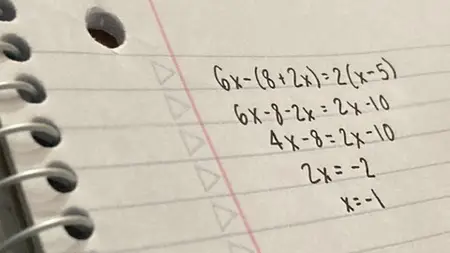 6x-(8+2x)=2(x-5)
6x-8-2x=2x-10
4x-8=2x-10
2x=-2
x=-1